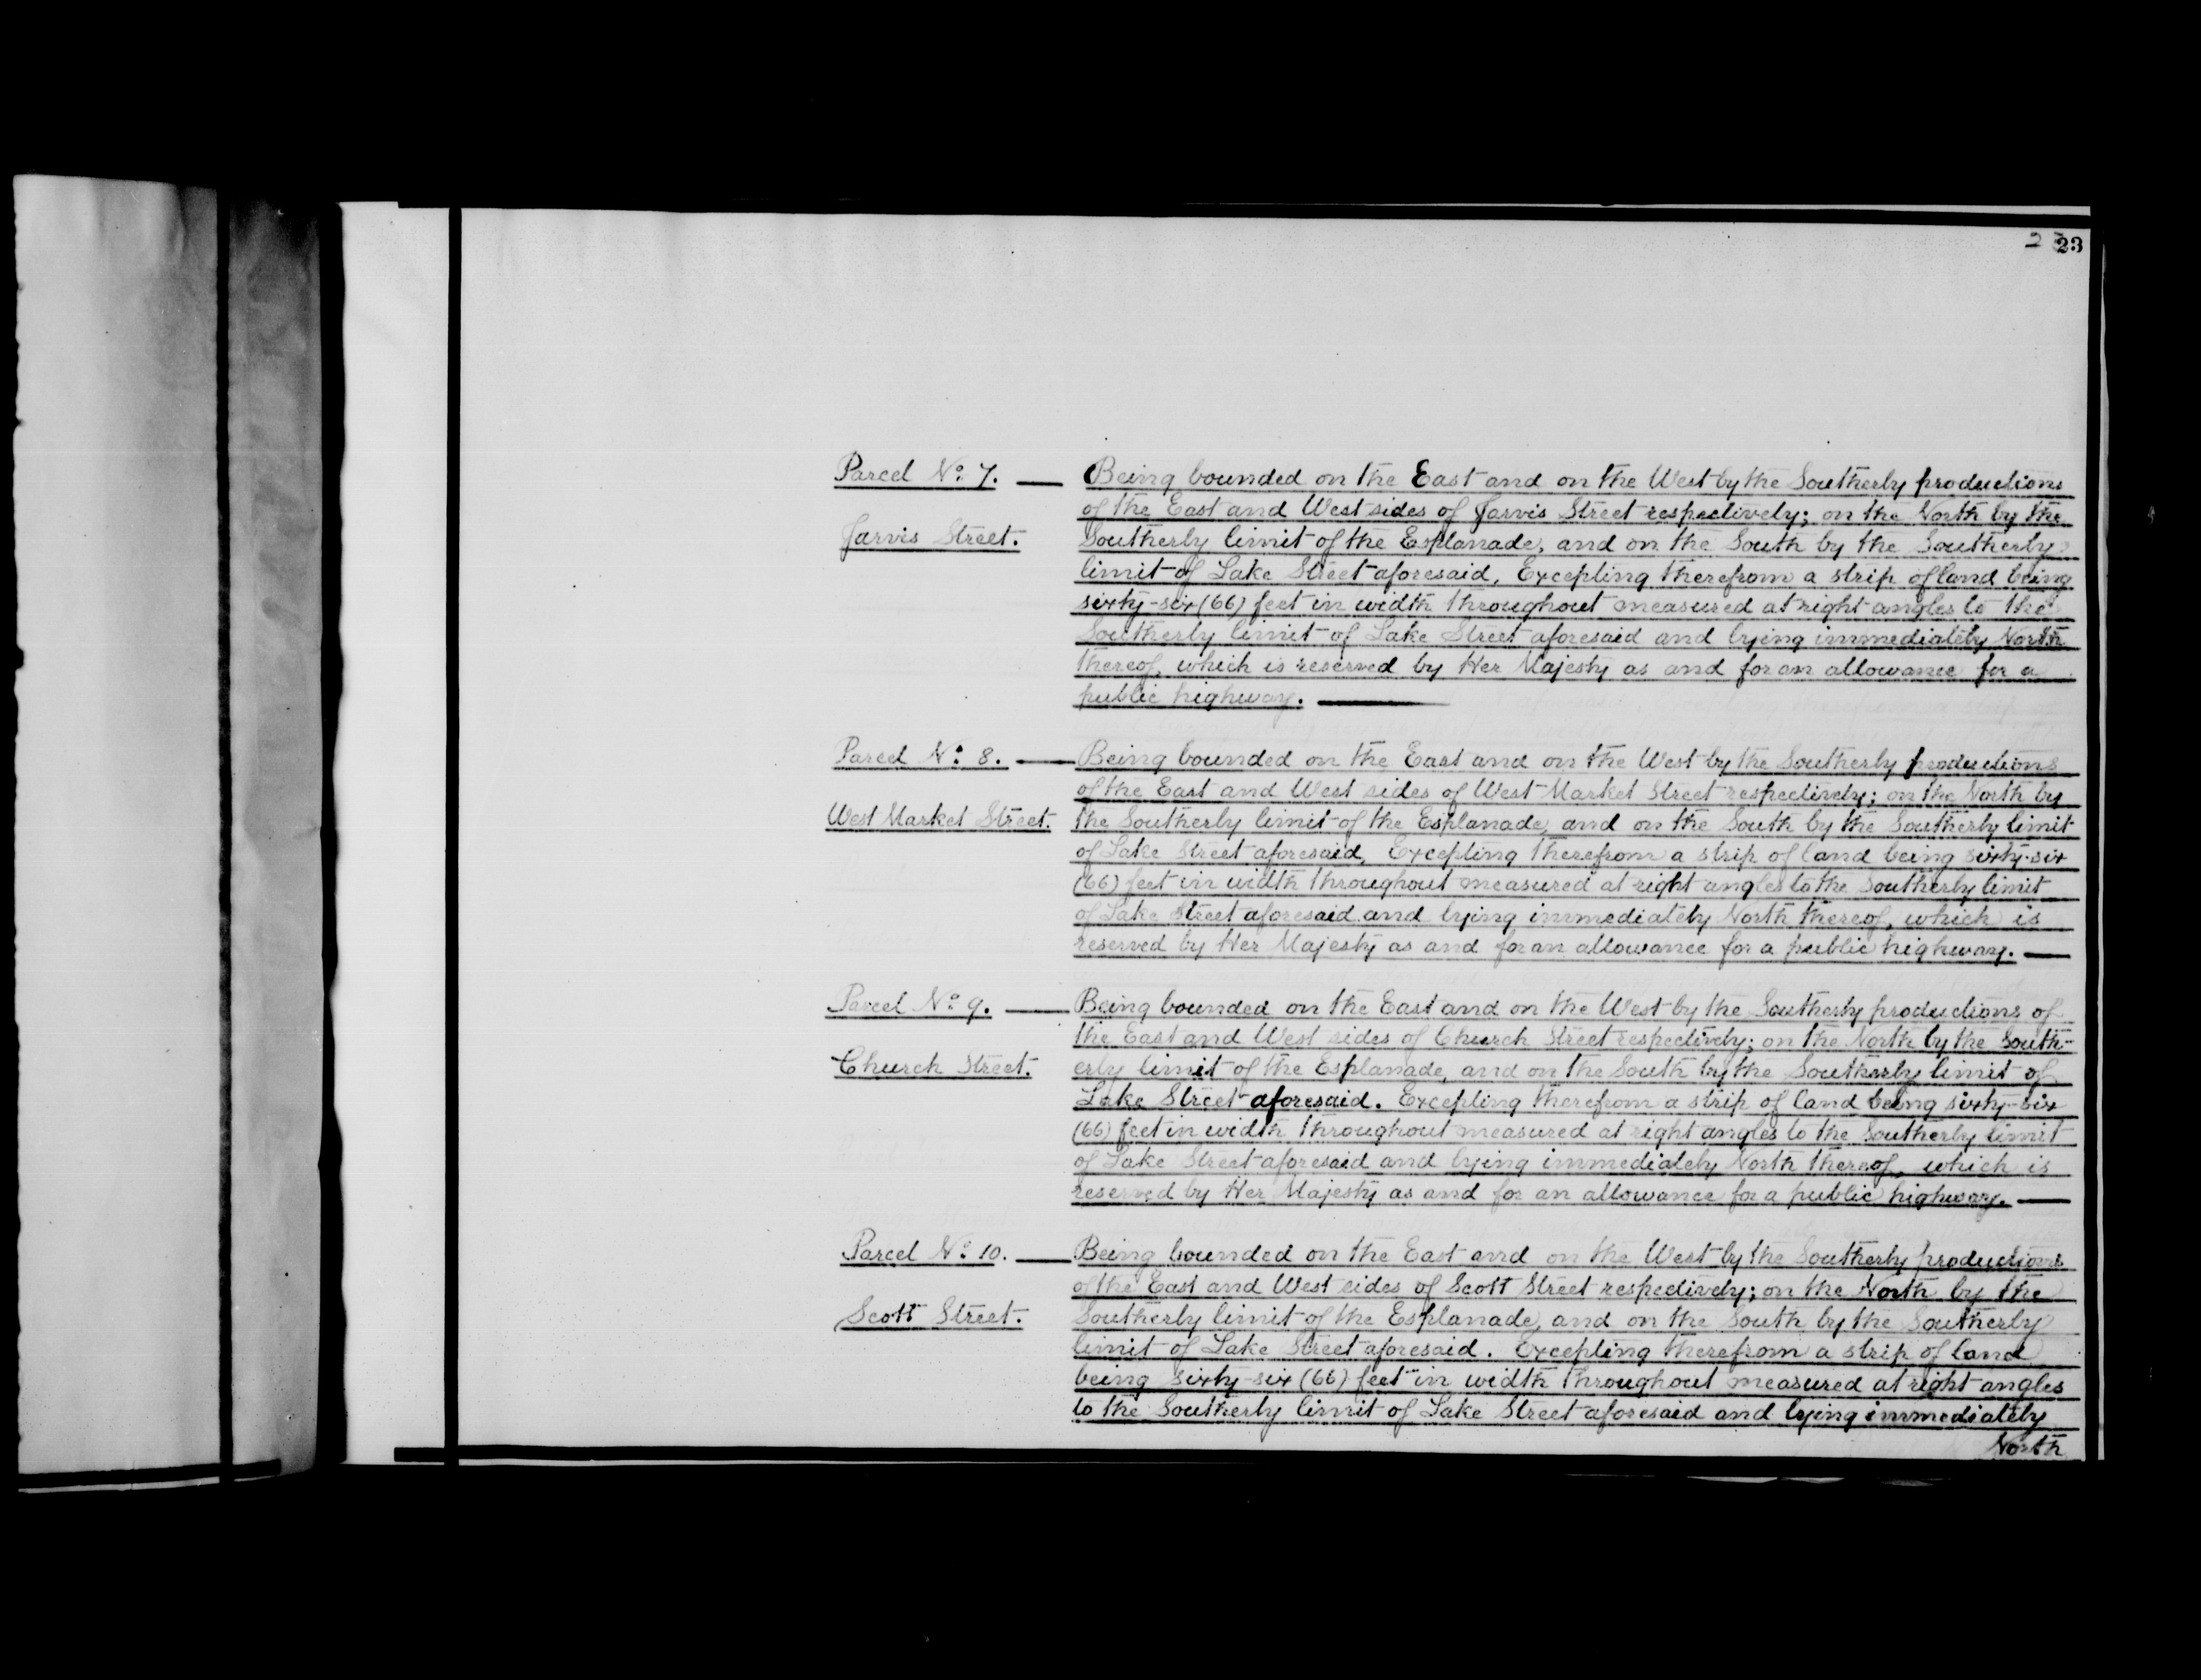 23
Parcel No. 7. — Being bounded on the East and on the West by the Southerly productions
of the East and West sides of Jarvis Street respectively; on the North by the
Jarvis Street. Southerly limit of the Esplanade, and on the South by the Southerly
limit of Lake Street aforesaid, Excepting therefrom a strip of land being
sixty-six (66) feet in width throughout measured at right angles to the
Southerly limit of Lake Street aforesaid and lying immediately North
thereof, which is reserved by Her Majesty as and for an allowance for a
public highway. —
Parcel No. 8. — Being bounded on the East and on the West by the Southerly productions
of the East and West sides of West Market Street respectively; on the North by
West Market Street. the Southerly limit of the Esplanade, and on the South by the Southerly limit
of Lake Street aforesaid, Excepting therefrom a strip of land being sixty-six
(66) feet in width throughout measured at right angles to the Southerly limit
of Lake Street aforesaid and lying immediately North thereof, which is
reserved by Her Majesty as and for an allowance for a public highway. —
Parcel No. 9. — Being bounded on the East and on the West by the Southerly productions of
the East and West sides of Church Street respectively; on the North by the South-
Church Street. erly limit of the Esplanade, and on the South by the Southerly limit of
Lake Street aforesaid. Excepting therefrom a strip of land being sixty-six
(66) feet in width throughout measured at right angles to the Southerly limit
of Lake Street aforesaid and lying immediately North thereof, which is
reserved by Her Majesty as and for an allowance for a public highway. —
Parcel No. 10. — Being bounded on the East and on the West by the Southerly productions
of the East and West sides of Scott Street respectively; on the North by the
Scott Street. Southerly limit of the Esplanade, and on the South by the Southerly
limit of Lake Street aforesaid. Excepting therefrom a strip of land
being sixty-six (66) feet in width throughout measured at right angles
to the Southerly limit of Lake Street aforesaid and lying immediately
North